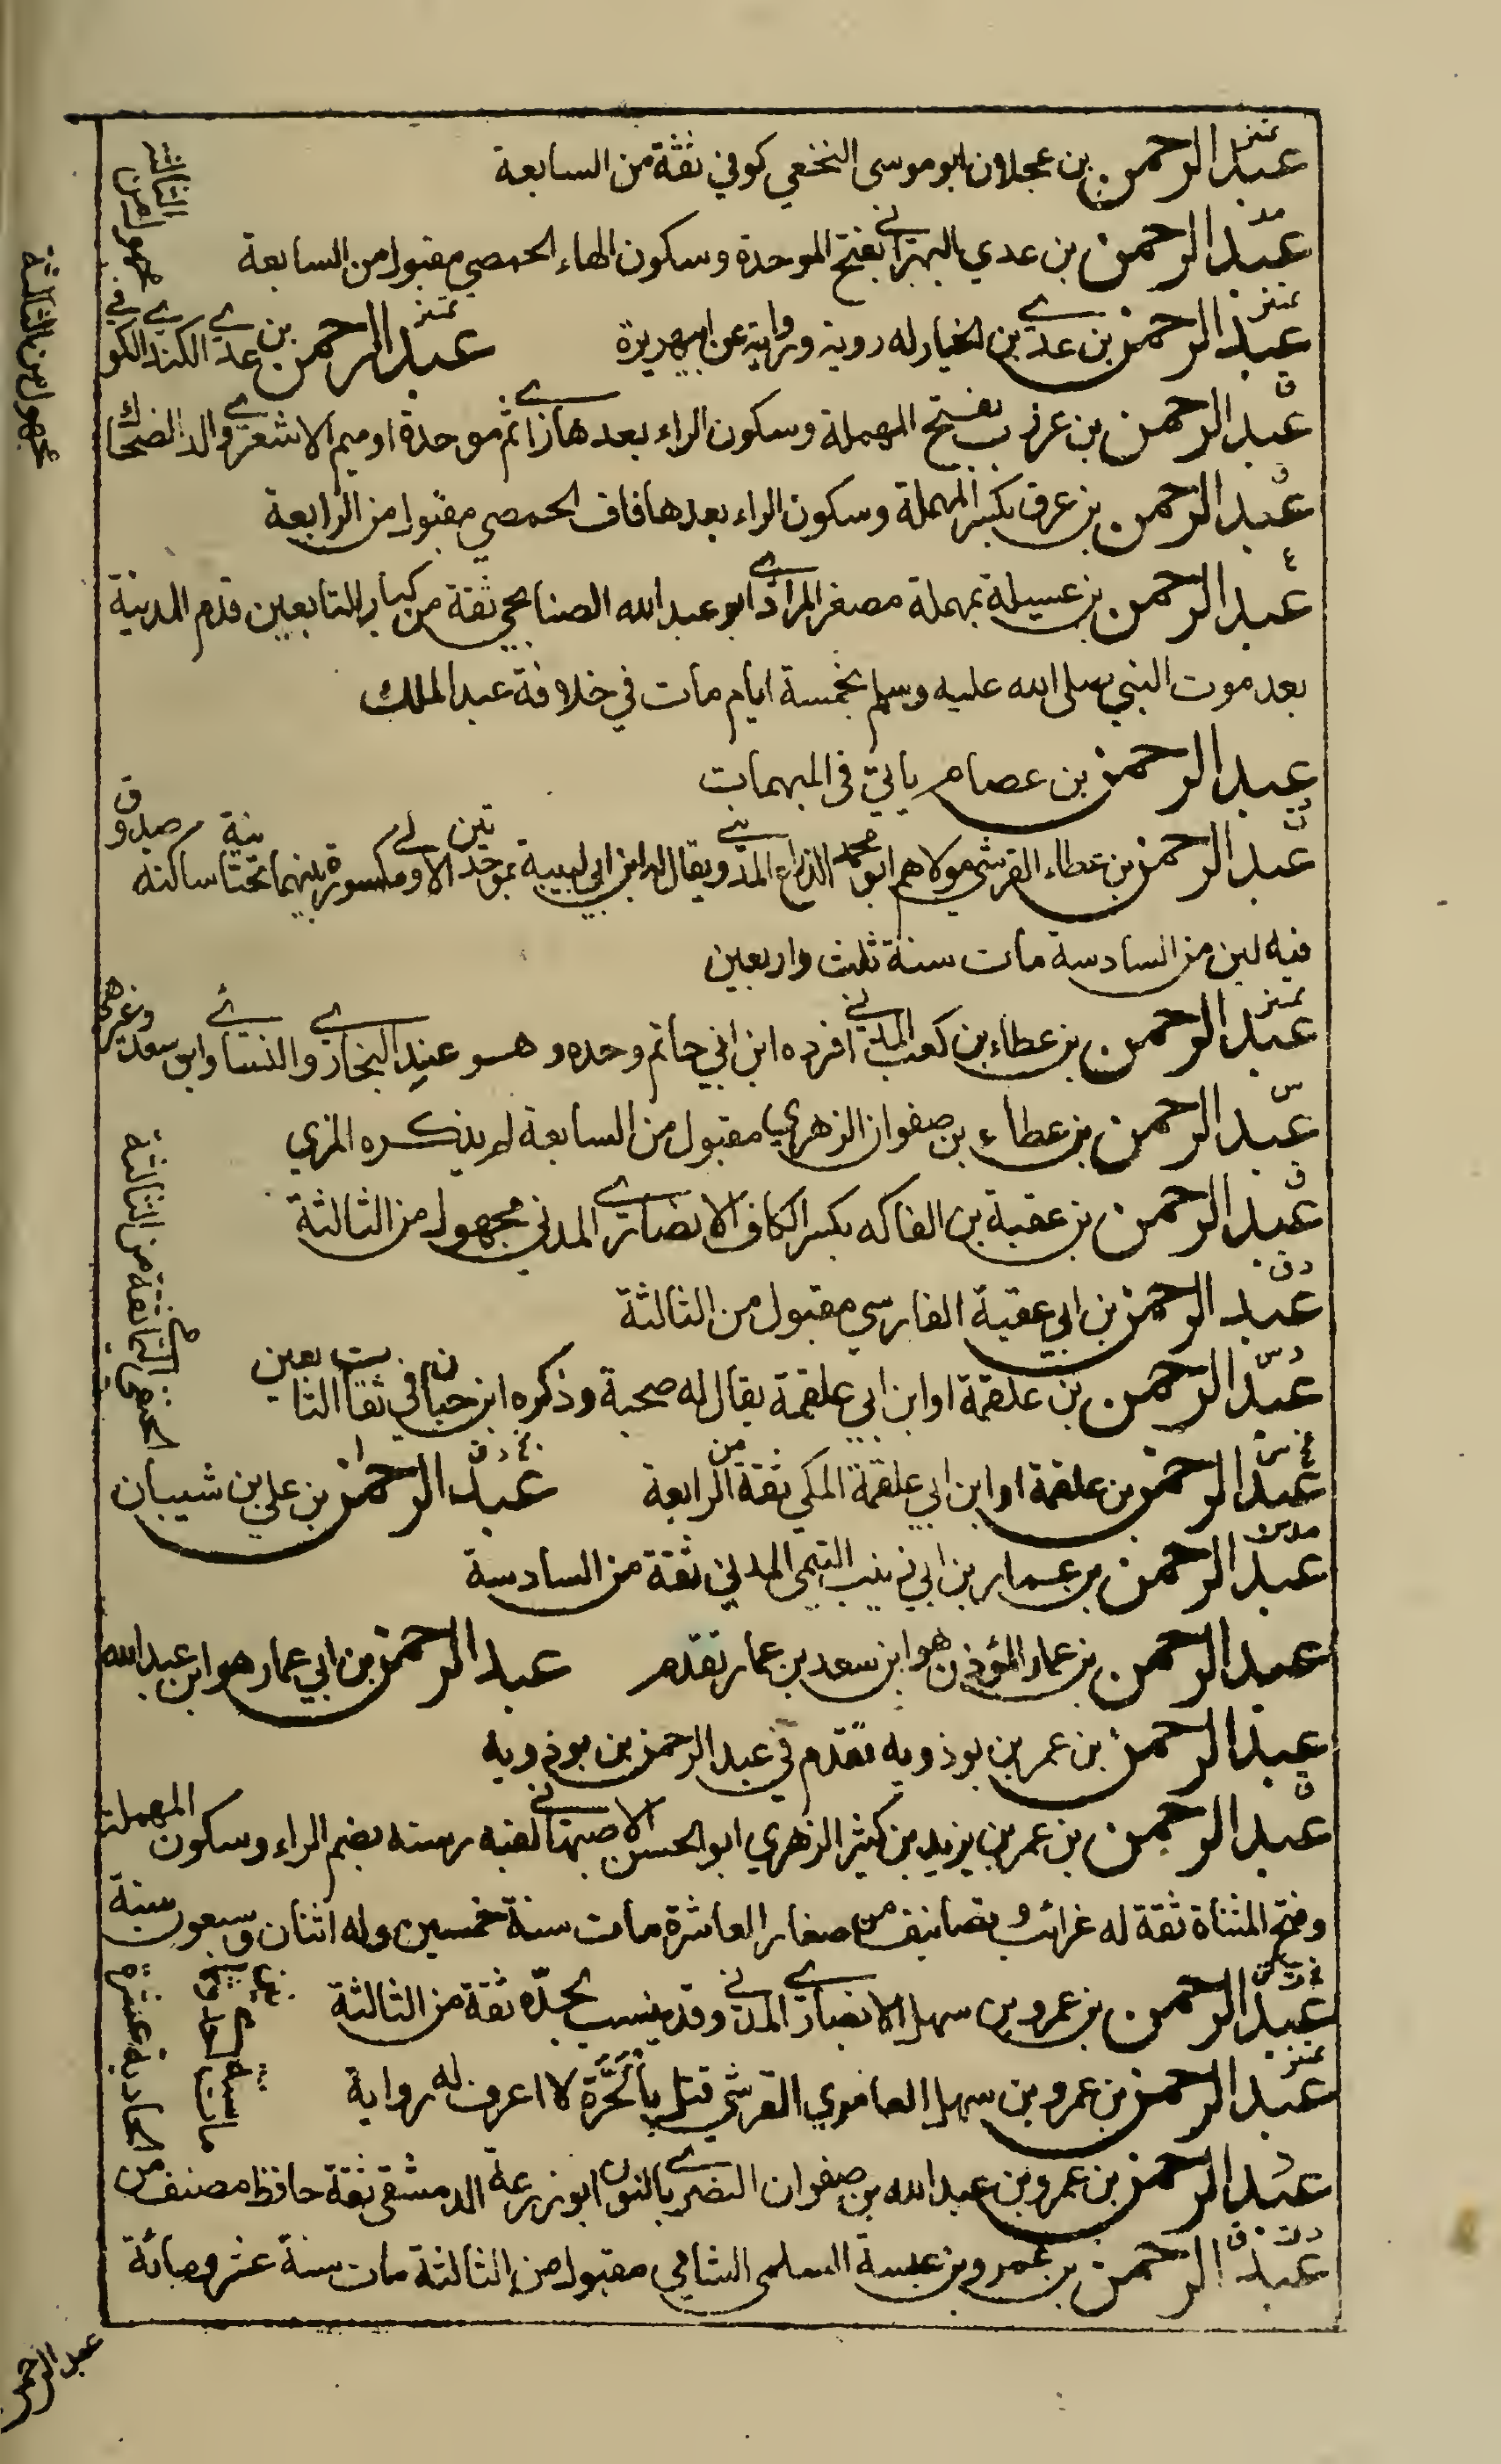 تمييز
عبد الرحمن بن عجلان ابو موسى النخعي كوفي ثقة من السابعة
مد
عبد الرحمن بن عدي البهراني بفتح الموحدة وسكون الهاء الحمصي مقبول من السابعة
تمييز
عبد الرحمن بن عدي بن الخيار له روية ورواية عن ابي هريرة
تمييز
عبد الرحمن بن عدي الكندي الكوفي
مجهول من الثالثة
ق
عبد الرحمن بن عرزب بفتح المهملة وسكون الراء بعدها زاي ثم موحدة او ميم الاشعري والد الضحاك
مجهول من الثالثة
ق
عبد الرحمن بن عرق بكسر المهملة وسكون الراء بعدها قاف الحمصي مقبول من الرابعة
ع
عبد الرحمن بن عسيلة بمهملة مصغر المرادي ابو عبد الله الصنابحي ثقة من كبار التابعين قدم المدينة
بعد موت النبي صلى الله عليه وسلم بخمسة ايام مات في خلافة عبد الملك
عبد الرحمن بن عصام ياتي في المبهمات
د ت
عبد الرحمن بن عطاء القرشي مولاهم ابو محمد الذراع المدني ويقال له ابن ابي لبيبة بموحدتين الاولى مكسورة بينهما تحتانية ساكنة صدوق
فيه لين من السادسة مات سنة ثلث واربعين
تمييز
عبد الرحمن بن عطاء بن كعب المدني افرده ابن ابي حاتم وحده وهو عند البخاري والنسائي وابن سعد وغيرهم
س
عبد الرحمن بن عطاء بن صفوان الزهري مقبول من السابعة لم يذكره المزي
ق
عبد الرحمن بن عقبة بن الفاكه بكسر الكاف الانصاري المدني مجهول من الثالثة
د ق
عبد الرحمن بن ابي عقبة الفارسي مقبول من الثالثة
د س
عبد الرحمن بن علقمة او ابن ابي علقمة يقال له صحبة وذكره ابن حبان في ثقات التابعين
س
عبد الرحمن بن علقمة او ابن ابي علقمة المكي ثقة من الرابعة
بخ د ق
عبد الرحمن بن علي بن شيبان
الحنفي اليمامي ثقة من الثالثة
مد س
عبد الرحمن بن عمار بن ابي زينب التيمي المدني ثقة من السادسة
عبد الرحمن بن عمار المؤذن هو ابن سعد بن عمار تقدم
عبد الرحمن بن ابي عمار هو ابن عبد الله
عبد الرحمن بن عمر بن بوذويه تقدم في عبد الرحمن بن بوذويه
ق
عبد الرحمن بن عمر بن يزيد بن كثير الزهري ابو الحسن الاصبهاني لقبه رسته بضم الراء وسكون المهملة
وفتح المثناة ثقة له غرائب وتصانيف من صغار العاشرة مات سنة خمسين وله اثنان وسبعون سنة
عبد الرحمن بن عمرو بن سهل الانصاري المدني وقد ينسب لجده ثقة من الثالثة
تمييز
عبد الرحمن بن عمرو بن سهل العامري القرشي قتل بالحرة لا اعرف له رواية
د
عبد الرحمن بن عمرو بن عبد الله بن صفوان النصري بالنون ابو زرعة الدمشقي ثقة حافظ مصنف من
الحادية عشرة
مات سنة احدى وثمانين
د ت ق
عبد الرحمن بن عمرو بن عبسة السلمي الشامي مقبول من الثالثة مات سنة عشر ومائة
عبد الرحمن